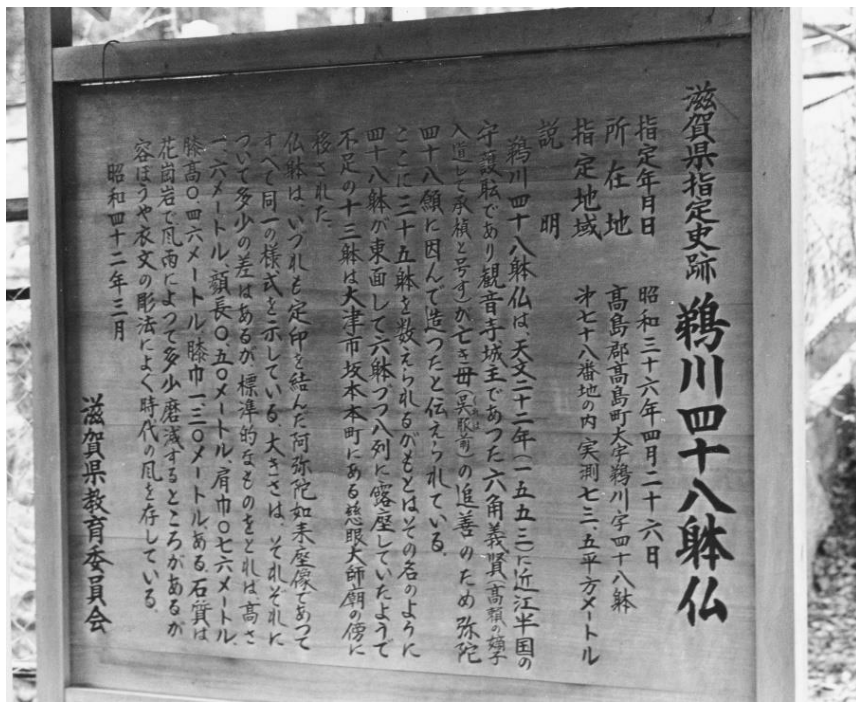 滋賀県指定史跡 鵜川四十八躰仏
指定年月日 昭和三十六年四月二十六日
所在地 高島郡高島町大字鵜川字四十八躰
指定地域 才七十八番地の内 実測七三、五平方メートル
説明
鵜川四十八躰仏は、天文二十二年(一五五三)に近江半国の
守護職であり観音寺城主であつた六角義賢(高頼の嫡子
入道して承禎と号す)が亡き毋(呉服前)の追善のため弥陀
四十八願に因んで造つたと伝えられている。
ここに三十五躰を数えられるがもとはその名のように
四十八躰が東面して六躰づつ八列に露座していたようで
不足の十三躰は大津市坂本本町にある慈眼大師廟の傍に
移された。
仏躰は、いづれも定印を結んだ阿弥陀如来座像であつて
すべて同一の様式を示している。大きさは、それぞれに
ついて多少の差はあるが標準的なものをとれば高さ
一、六メートル、顔長〇、五〇メートル、肩巾〇七六メートル、
膝高〇、四六メートル、膝巾一、三〇メートル、ある。石質は
花崗岩で風雨によつて多少磨滅するところがあるが
容ぼうや衣文の彫法によく時代の風を存している。
昭和四十二年三月
滋賀県教育委員会